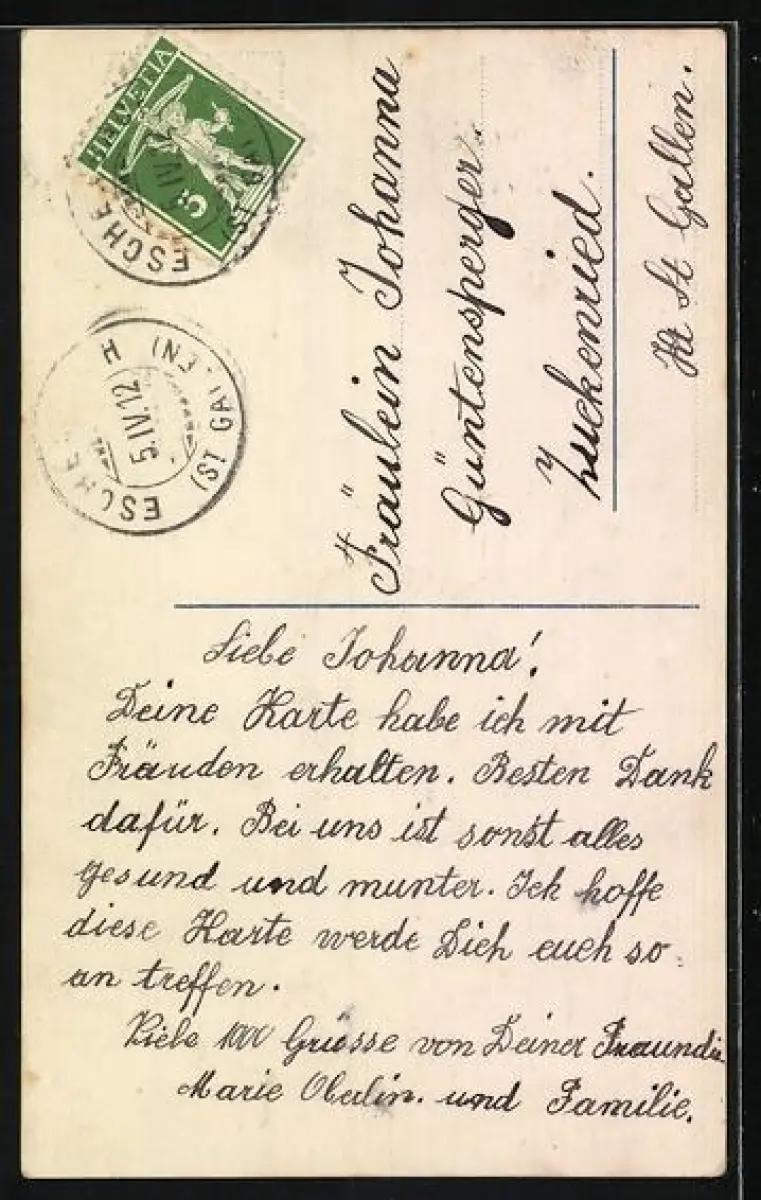 HELVETIA
5
ESCHE
ESCHE
(ST. GALLEN)
5.IV.12
Fräulein Johanna
Güntensperger.
Zuckenried.
Kt St Gallen.
Liebe Johanna!
Deine Karte habe ich mit
Fräuden erhalten. Besten Dank
dafür. Bei uns ist sonst alles
gesund und munter. Ich hoffe
diese Karte werde Dich euch so
an treffen.
Viele 1000 Grüsse von Deiner Fraundin
Marie Oberlin. und Familie.